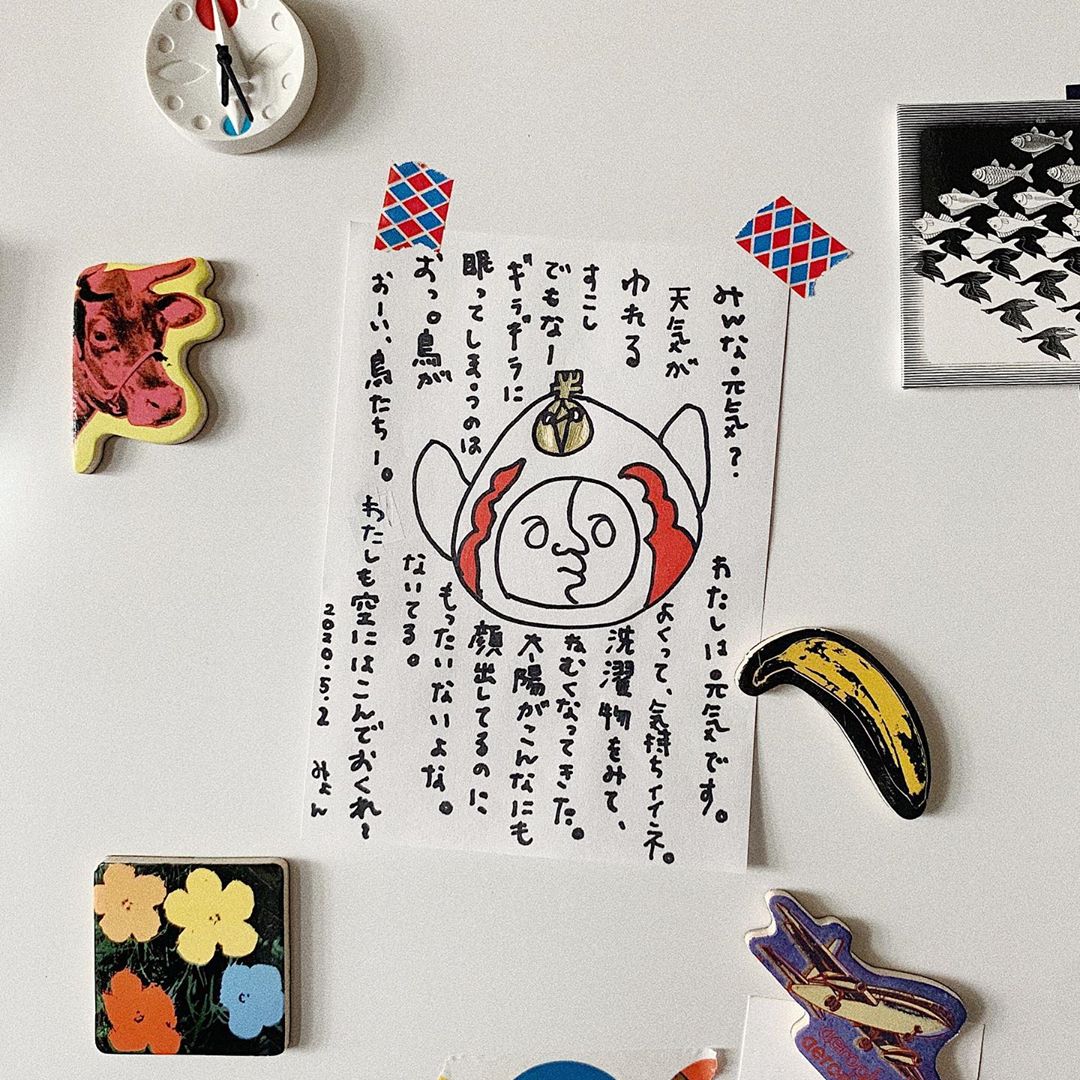 みんな。元気? わたしは。元気です。
天気が よくって、気持ちイイネ。
ゆれる 洗濯物をみて、
すこし ねむくなってきた。
でもなー 太陽がこんなにも
ギラギラに 顔出してるのに、
眠ってしまうのは もったいないよな。
おっ。鳥が ないてる。
おーい、鳥たちー。わたしも空にはこんでおくれ〜
2020.5.2 みょん